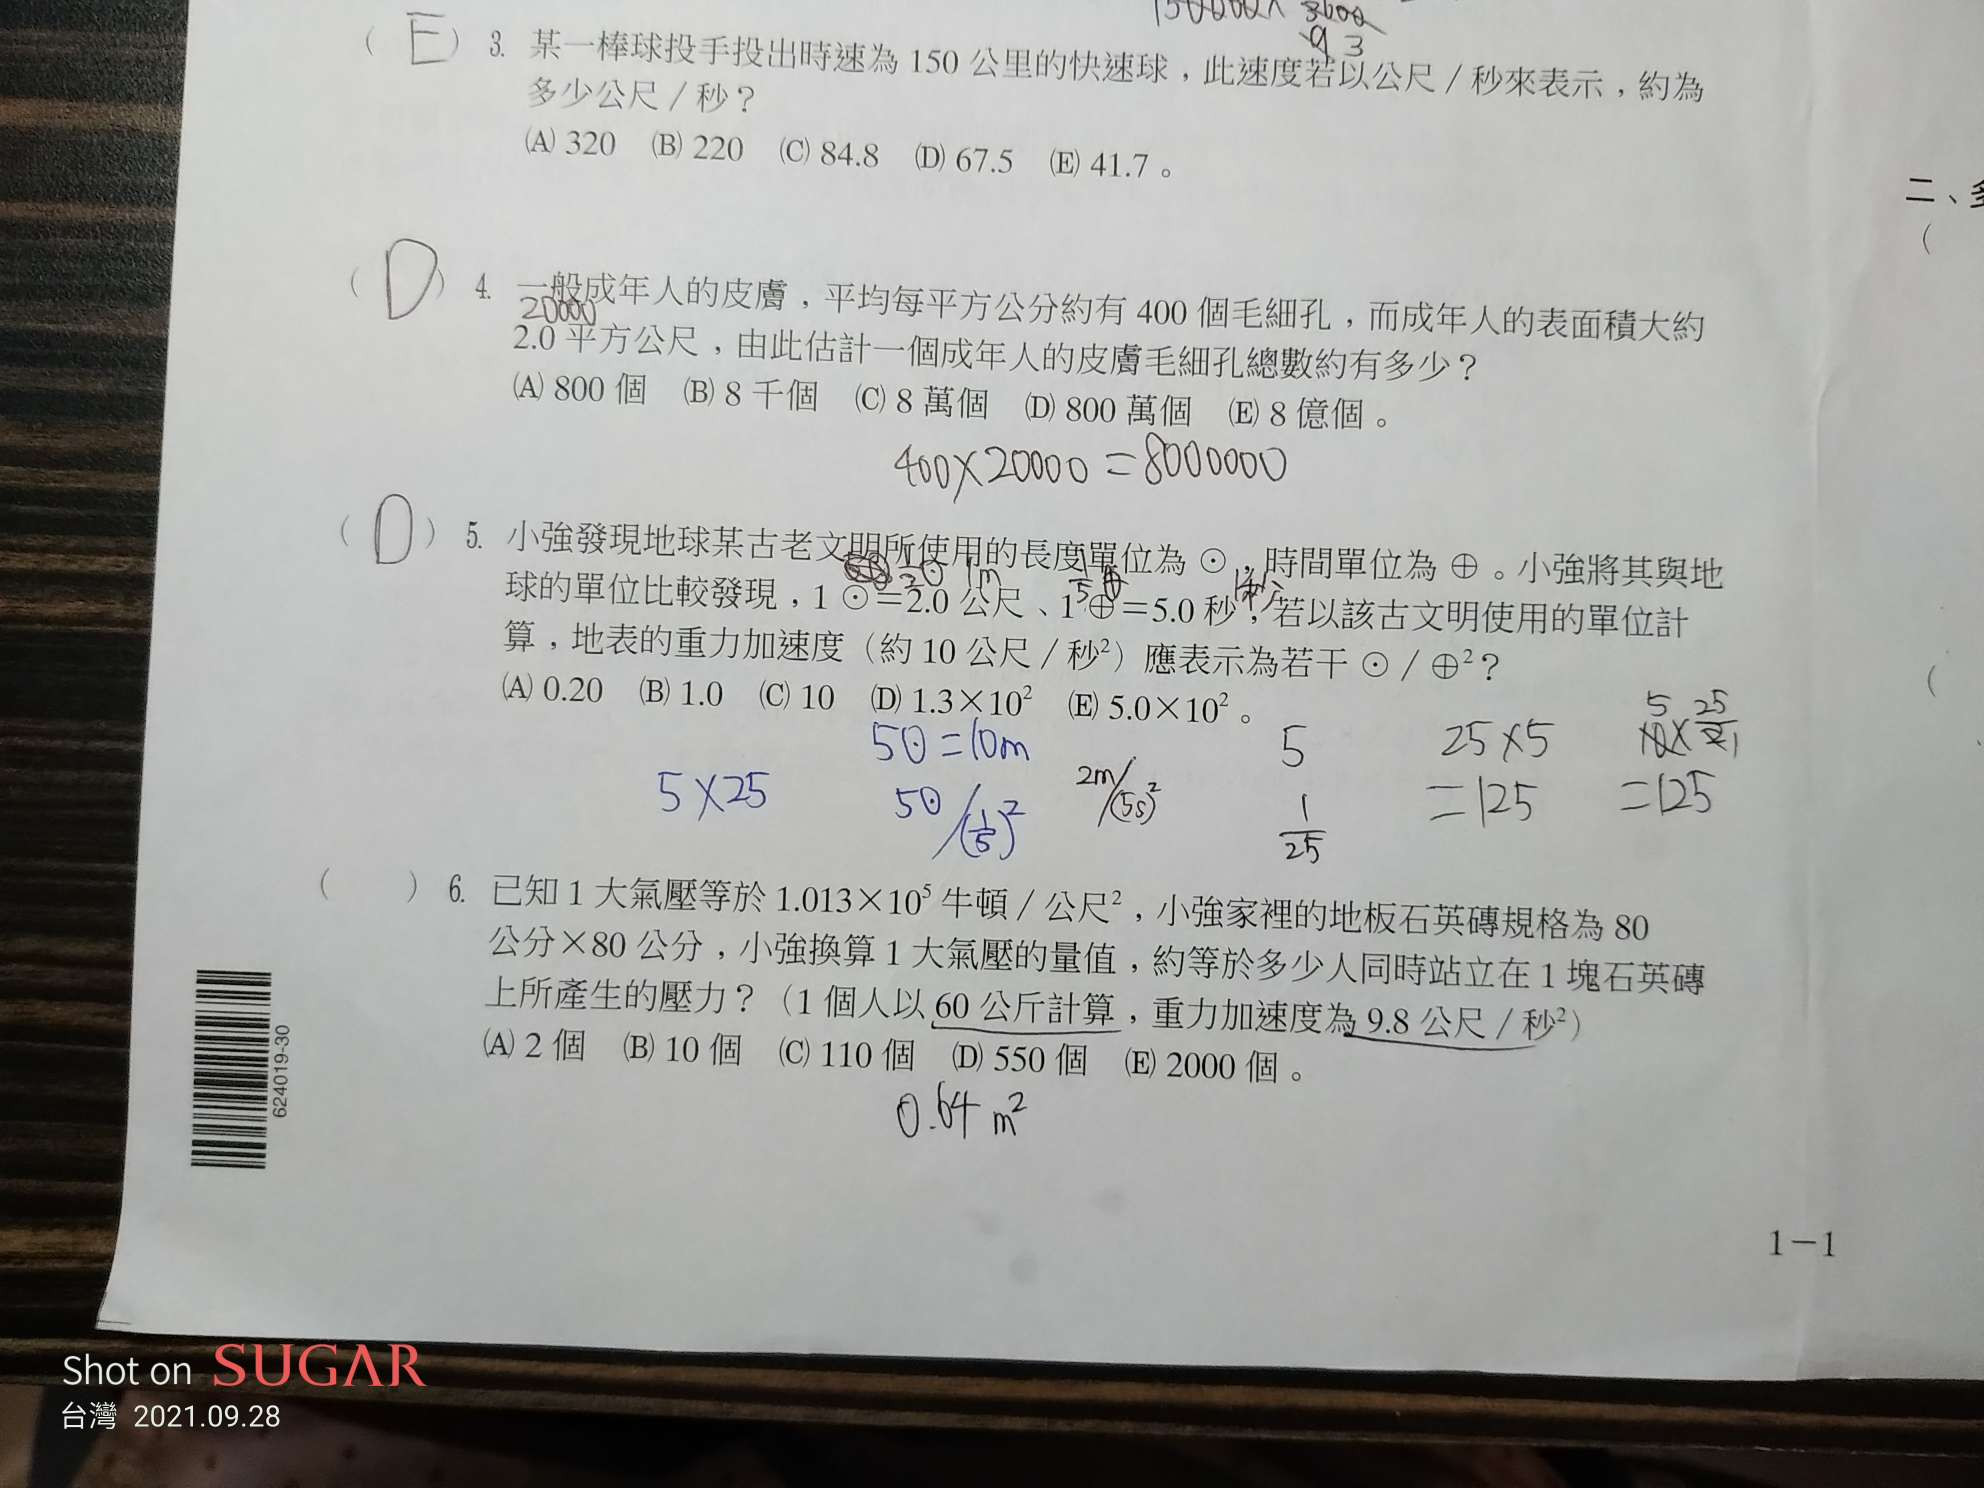 150000×3600
9 3
(E) 3. 某一棒球投手投出時速為 150 公里的快速球，此速度若以公尺／秒來表示，約為
多少公尺／秒？
(A) 320 (B) 220 (C) 84.8 (D) 67.5 (E) 41.7。
二、多
(
(D) 4. 一般成年人的皮膚，平均每平方公分約有 400 個毛細孔，而成年人的表面積大約
20000
2.0 平方公尺，由此估計一個成年人的皮膚毛細孔總數約有多少？
(A) 800 個 (B) 8 千個 (C) 8 萬個 (D) 800 萬個 (E) 8 億個。
400×20000=8000000
(D) 5. 小強發現地球某古老文明所使用的長度單位為 ⊙，時間單位為 ⊕。小強將其與地
1/2⊙ 1m 1/5⊕ 1秒
球的單位比較發現，1 ⊙＝2.0 公尺、1 ⊕＝5.0 秒，若以該古文明使用的單位計
算，地表的重力加速度（約 10 公尺／秒²）應表示為若干 ⊙／⊕²？
(A) 0.20 (B) 1.0 (C) 10 (D) 1.3×10² (E) 5.0×10²。
(
5⊙=10m 5 25×5 5 10×25/2 1
5×25 5⊙/(1/5)² 2m/(5s)² 1/25 =125 =125
( ) 6. 已知 1 大氣壓等於 1.013×10⁵ 牛頓／公尺²，小強家裡的地板石英磚規格為 80
公分×80 公分，小強換算 1 大氣壓的量值，約等於多少人同時站立在 1 塊石英磚
上所產生的壓力？（1 個人以 60 公斤計算，重力加速度為 9.8 公尺／秒²）
(A) 2 個 (B) 10 個 (C) 110 個 (D) 550 個 (E) 2000 個。
0.64 m²
624019-30
1－1
Shot on SUGAR
台灣 2021.09.28